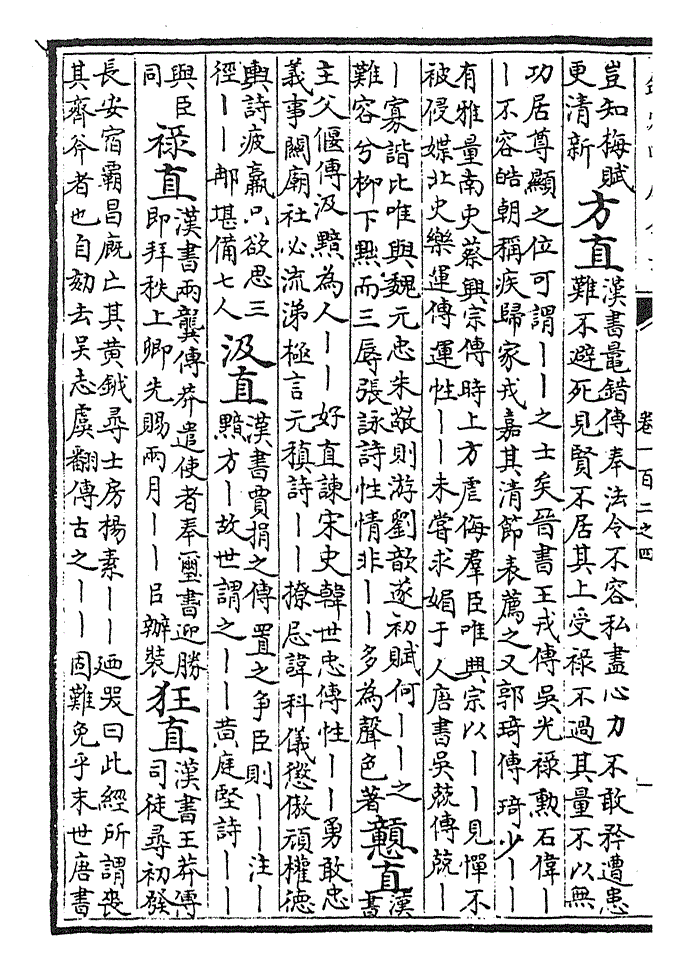 卷一百二之四
豈知梅賦
更清新
方直
漢書鼂錯傳奉法令不容私盡心力不敢矜遭患
難不避死見賢不居其上受祿不過其量不以無
功居尊顯之位可謂丨丨之士矣晉書王戎傳吳光祿勲石偉丨
丨不容皓朝稱疾歸家戎嘉其清節表薦之又郭琦傳琦少丨丨
有雅量南史蔡興宗傳時上方虐侮羣臣唯興宗以丨丨見憚不
被侵媟北史樂運傳運性丨丨未嘗求媚于人唐書吳兢傳兢丨
丨寡諧比唯與魏元忠朱敬則游劉歆遂初賦何丨丨之
難容兮柳下黜而三辱張詠詩性情非丨丨多為聲色著
戇直
漢
書
主父偃傳汲黯為人丨丨好直諫宋史韓世忠傳性丨丨勇敢忠
義事關廟社必流涕極言元稹詩丨丨撩忌諱科儀懲傲頑權德
輿詩疲羸只欲思三
徑丨丨那堪備七人
汲直
漢書賈捐之傳置之爭臣則丨丨注丨
黯方丨故世謂之丨丨黄庭堅詩丨丨
與臣
同
祿直
漢書兩龔傳莽遣使者奉璽書迎勝
即拜秩上卿先賜兩月丨丨㠯辦裝
狂直
漢書王莽傳
司徒尋初發
長安宿霸昌廐亡其黄鉞尋士房楊素丨丨廼哭曰此經所謂喪
其齊斧者也自劾去吳志虞翻傳古之丨丨固難免乎末世唐書